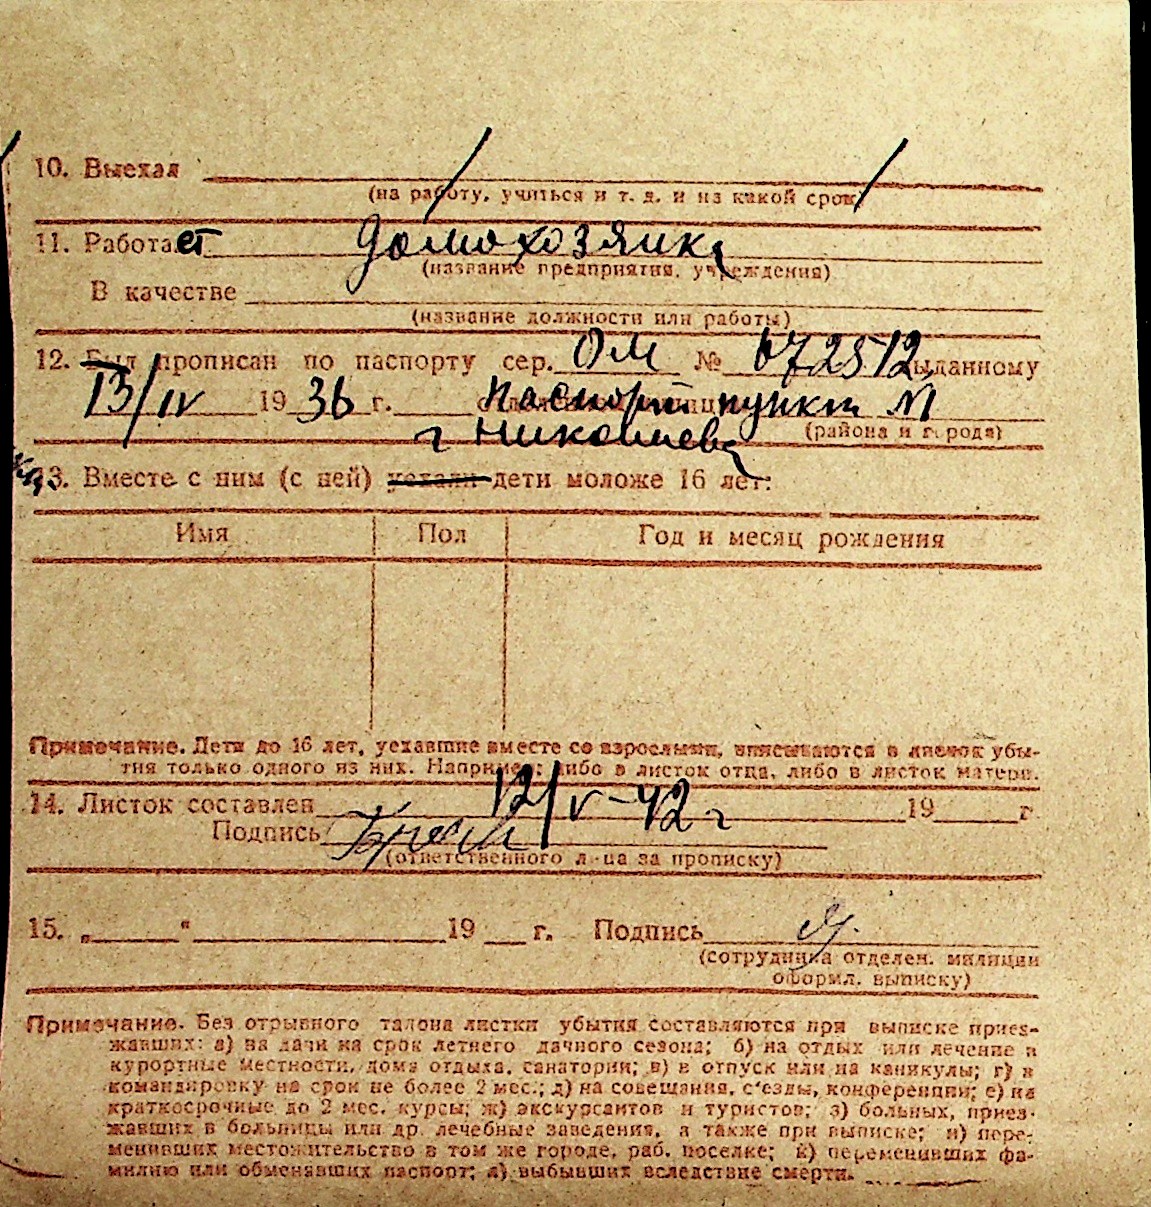 10. Выехал
(на работу, учиться и т. д. и на какой срок)
11. Работает домохозяйка
(название предприятия, учреждения)
В качестве
(название должности или работы)
12. Был прописан по паспорту сер. ОМ № 672512 выданному
13/IV 1936 г. паспорт пункт М
г Николаева (района и города)
13. Вместе с ним (с ней) уехали дети моложе 16 лет:
Имя Пол Год и месяц рождения
Примечание. Дети до 16 лет, уехавшие вместе со взрослыми, вписываются в листок убы-
тия только одного из них. Например: либо в листок отца, либо в листок матери.
14. Листок составлен 12/V-42 г 19 г.
Подпись
(ответственного лица за прописку)
15. „ “ 19 г. Подпись
(сотрудника отделен. милиции
оформл. выписку)
Примечание. Без отрывного талона листки убытия составляются при выписке приез-
жавших: а) на дачи на срок летнего дачного сезона; б) на отдых или лечение в
курортные местности, дома отдыха, санатории; в) в отпуск или на каникулы; г) в
командировку на срок не более 2 мес.; д) на совещания, с'езды, конференции; е) на
краткосрочные до 2 мес. курсы; ж) экскурсантов и туристов; з) больных, приез-
жавших в больницы или др. лечебные заведения, а также при выписке; и) пере-
менивших местожительство в том же городе, раб. поселке; к) переменивших фа-
милию или обменявших паспорт; л) выбывших вследствие смерти.